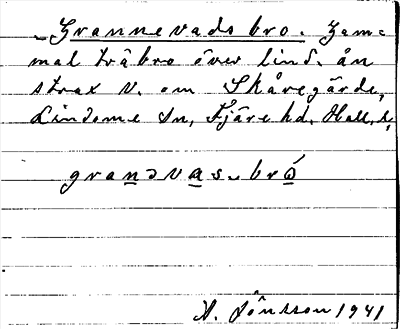 Grannevads bro. Gam=
mal träbro över lind. ån
strax v. om Skåregärde,
Lindome sn, Fjäre hd, Hall. l.
granəvas-brō
A. Jönsson 1941